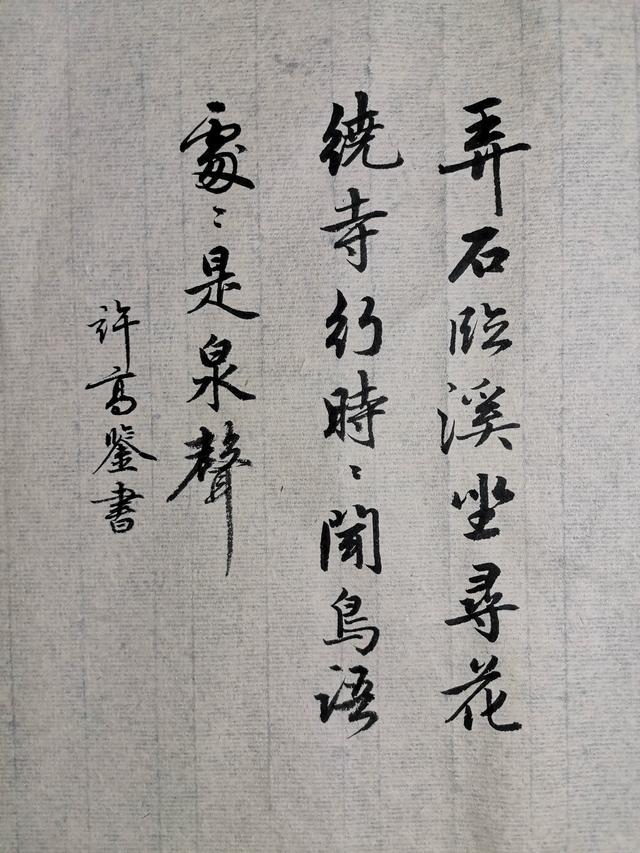 弄石临溪坐尋花
繞寺行時〻聞鳥語
處〻是泉聲
許高鑒書